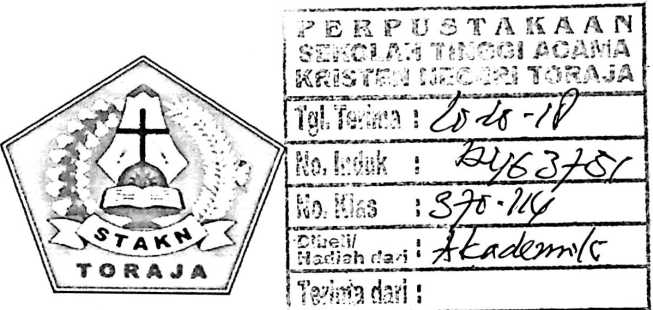 STAKN
TORAJA
PERPUSTAKAAN
SEKOLAH TINGGI AGAMA
KRISTEN NEGERI TORAJA
Tgl. Terima :
No. Induk :
No. Klas :
Dibeli/
Hadiah dari : Akademik
Terima dari :